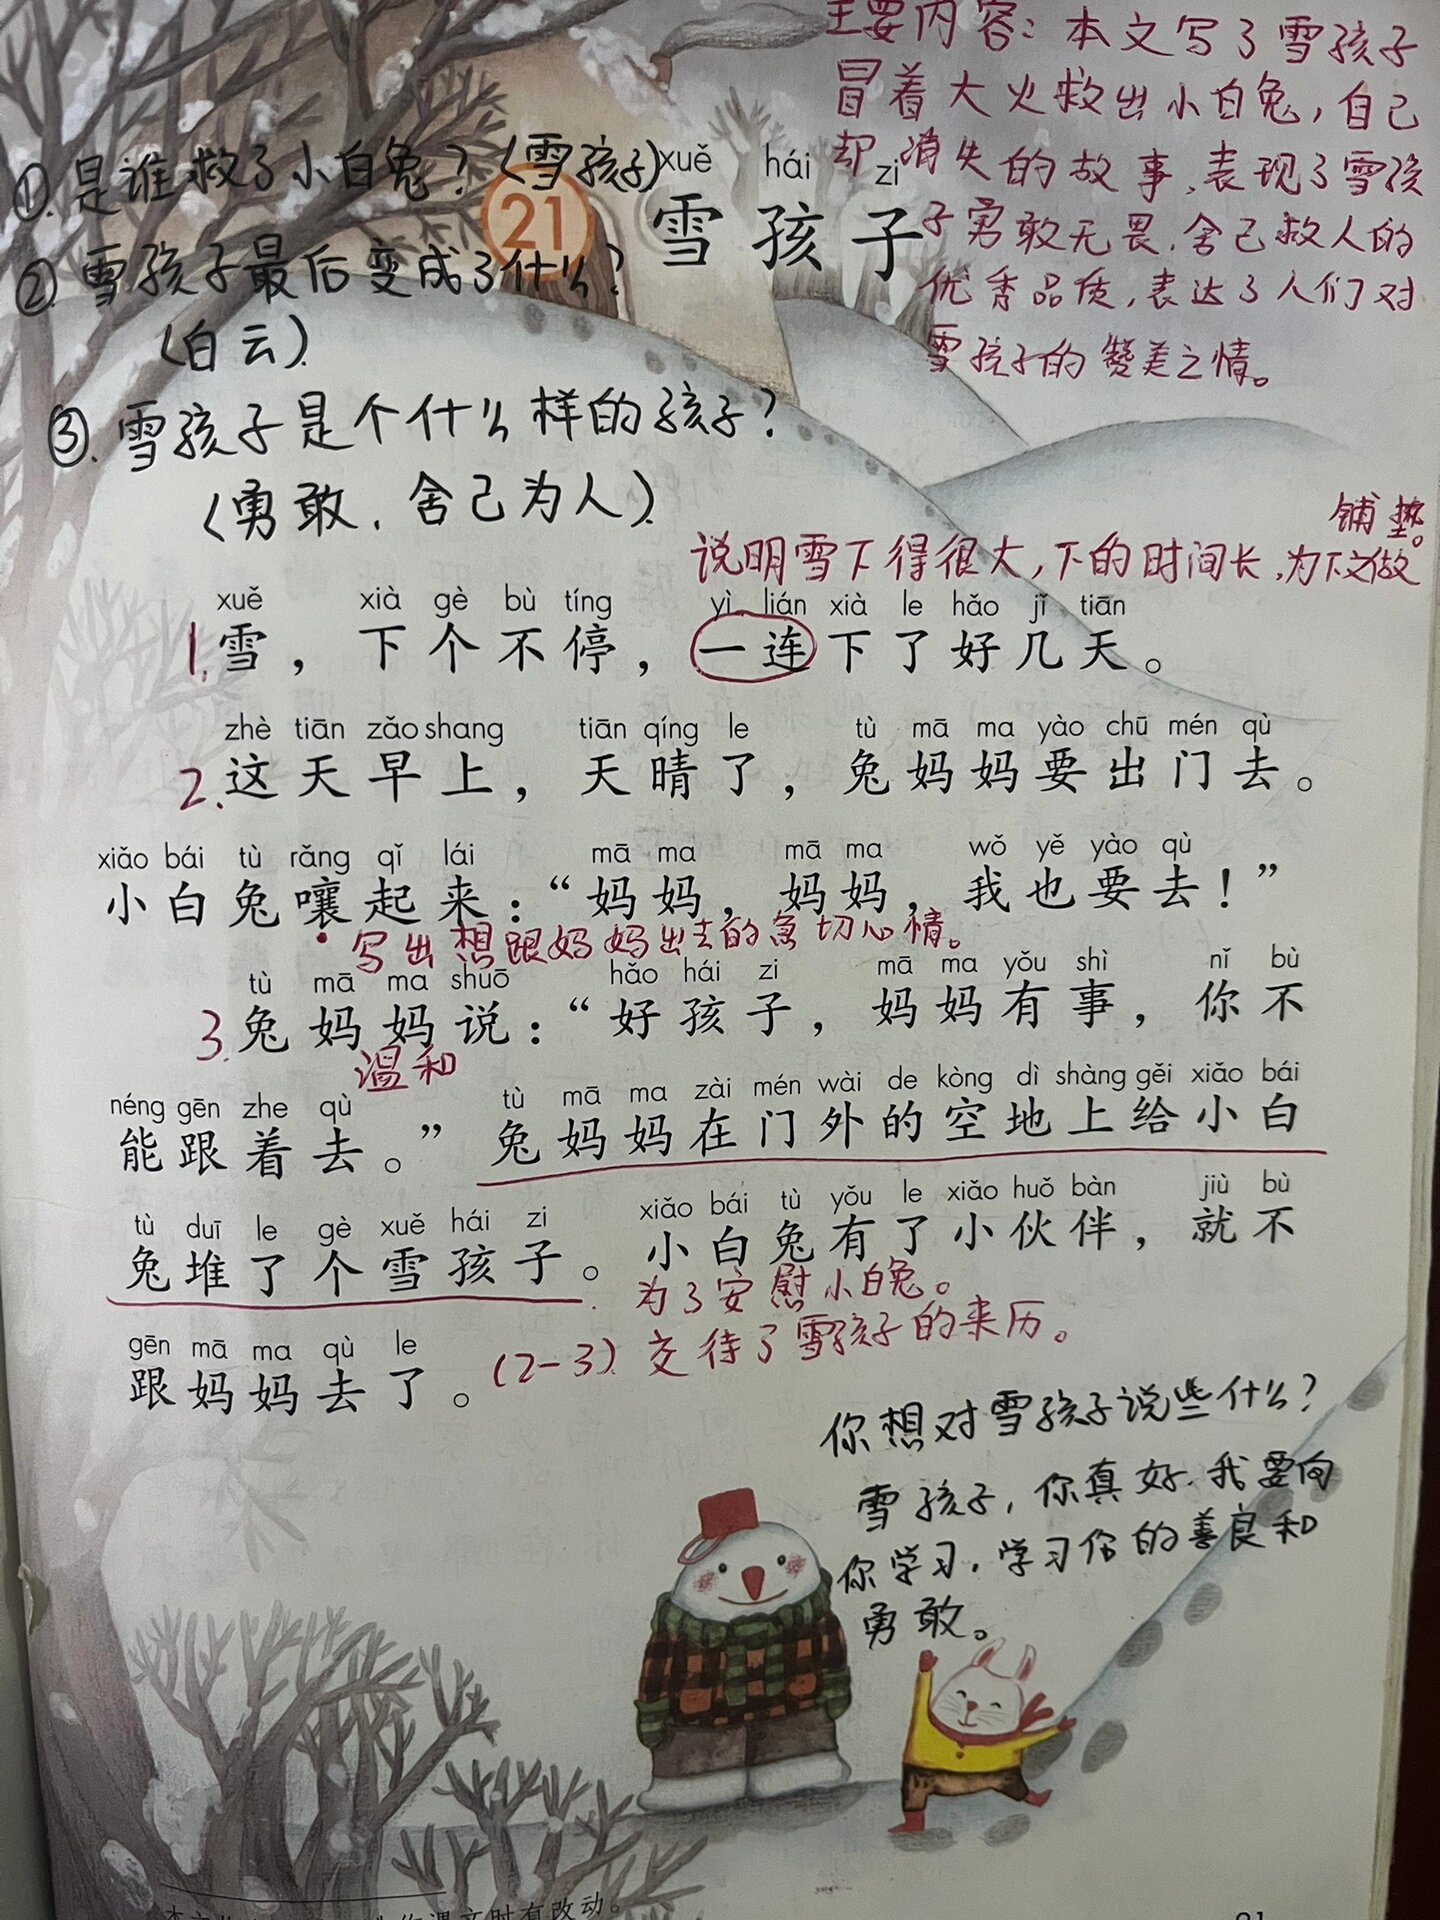 主要内容：本文写了雪孩子
冒着大火救出小白兔，自己
却消失的故事，表现了雪孩
子勇敢无畏，舍己救人的
优秀品质，表达了人们对
雪孩子的赞美之情。
①.是谁救了小白兔？（雪孩子）
②.雪孩子最后变成了什么？
（白云）.
③.雪孩子是个什么样的孩子？
（勇敢，舍己为人）.
21
xuě hái zi
雪孩子
铺垫。
说明雪下得很大，下的时间长，为下文做
xuě xià gè bù tíng yì lián xià le hǎo jǐ tiān
1.雪，下个不停，一连下了好几天。
zhè tiān zǎo shang tiān qíng le tù mā ma yào chū mén qù
2.这天早上，天晴了，兔妈妈要出门去。
xiǎo bái tù rǎng qǐ lái mā ma mā ma wǒ yě yào qù
小白兔嚷起来：“妈妈，妈妈，我也要去！”
写出想跟妈妈出去的急切心情。
tù mā ma shuō hǎo hái zi mā ma yǒu shì nǐ bù
3.兔妈妈说：“好孩子，妈妈有事，你不
温和
néng gēn zhe qù tù mā ma zài mén wài de kòng dì shàng gěi xiǎo bái
能跟着去。”兔妈妈在门外的空地上给小白
tù duī le gè xuě hái zi xiǎo bái tù yǒu le xiǎo huǒ bàn jiù bù
兔堆了个雪孩子。小白兔有了小伙伴，就不
为了安慰小白兔。
gēn mā ma qù le
跟妈妈去了。
（2-3）交待了雪孩子的来历。
你想对雪孩子说些什么？
雪孩子，你真好，我要向
你学习，学习你的善良和
勇敢。
课文时有改动。